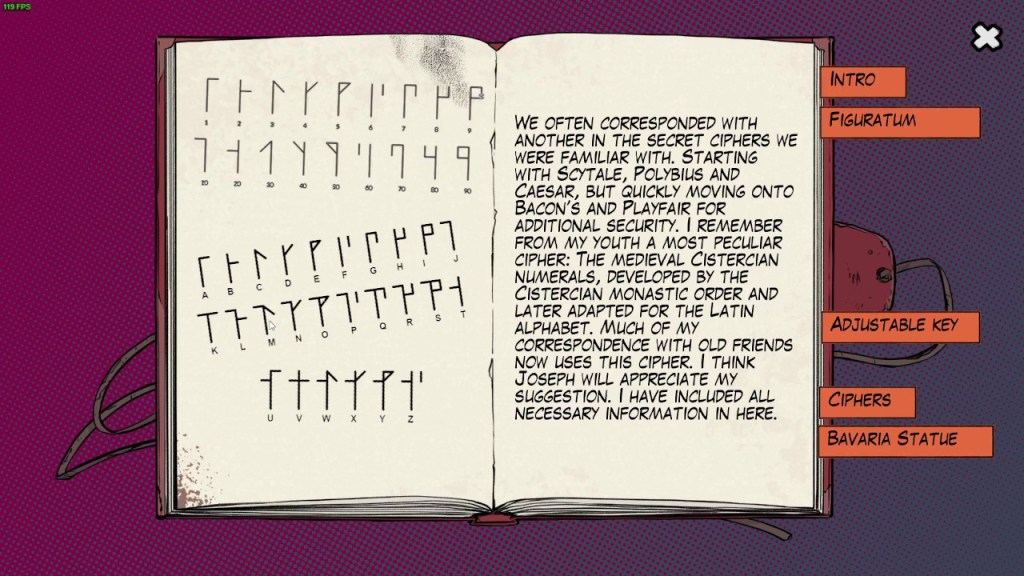 119 FPS
1 2 3 4 5 6 7 8 9
10 20 30 40 50 60 70 80 90
A B C D E F G H I J
K L M N O P Q R S T
U V W X Y Z
We often corresponded with
another in the secret ciphers we
were familiar with. Starting
with Scytale, Polybius and
Caesar, but quickly moving onto
Bacon's and Playfair for
additional security. I remember
from my youth a most peculiar
cipher: The medieval Cistercian
numerals, developed by the
Cistercian monastic order and
later adapted for the Latin
alphabet. Much of my
correspondence with old friends
now uses this cipher. I think
Joseph will appreciate my
suggestion. I have included all
necessary information in here.
Intro
Figuratum
Adjustable key
Ciphers
Bavaria Statue